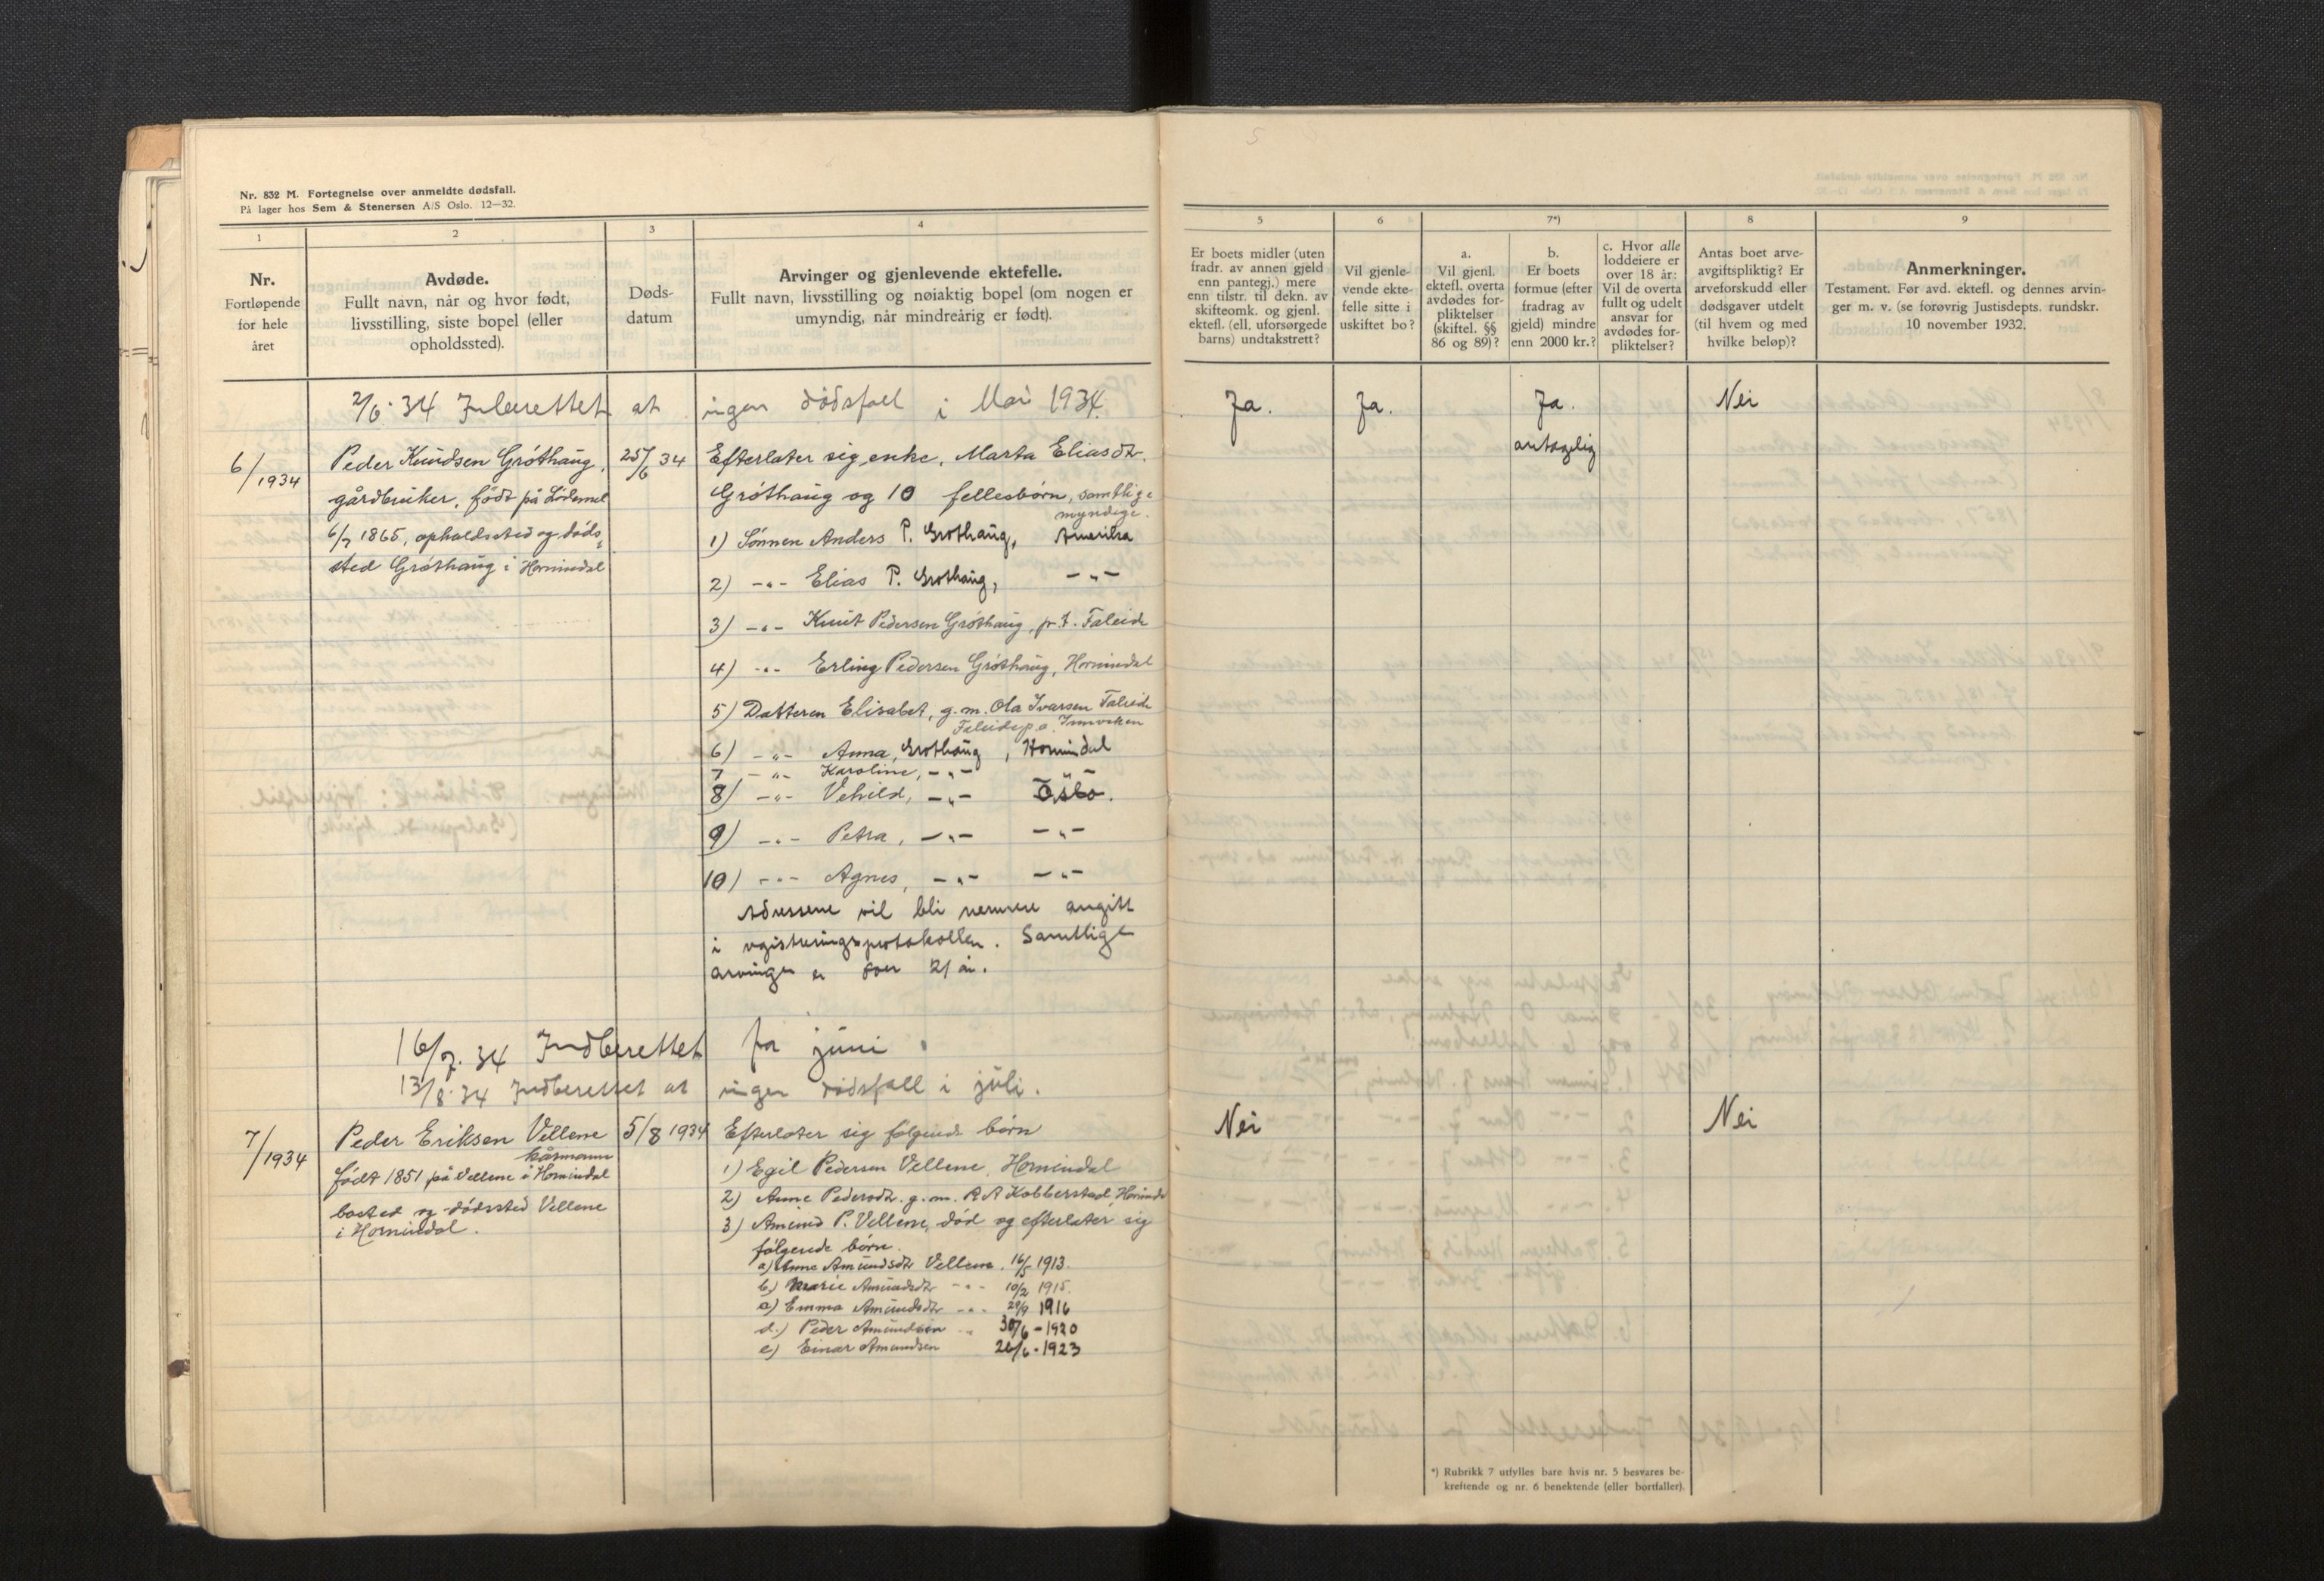 Nr. 832 M. Fortegnelse over anmeldte dødsfall.
På lager hos Sem & Stenersen A/S Oslo. 12—32.
1
2
3
4
Nr.
Fortløpende
for hele
året
Avdøde.
Fullt navn, når og hvor født,
livsstilling, siste bopel (eller
opholdssted).
Døds-
datum
Arvinger og gjenlevende ektefelle.
Fullt navn, livsstilling og nøiaktig bopel (om nogen er
umyndig, når mindreårig er født).
2/6. 34 Inberettet at ingen dödsfall i Mai 1934.
6/1934
Peder Knudsen Gróthaug,
gårdbruker, född på Lödemel
6/7 1865, opholdssted og döds-
sted Gróthaug i Hornindal
25/6 34
Efterlater sig enke, Marta Eliasdtr.
Gróthaug og 10 fellesbörn, samtlige
myndige.
1) Sönnen Anders P. Grothaug, Amerika
2) -"- Elias P. Grothaug, -"-
3) -"- Knut Pedersen Gróthaug, p.t. Faleide
4) -"- Erling Pedersen Gróthaug, Hornindal
5) Datteren Elisabet, g.m. Ola Ivarsen Faleide
Faleide p.a. Innviken
6) -"- Anna, Grothaug, Hornindal
7 -"- Karoline, -"- -"-
8) -"- Vehild, -"- Oslo.
9) -"- Petra, -"- -"-
10) -"- Agnes, -"- -"-
Adressene vil bli nermere angitt
i registreringsprotokollen. Samtlige
arvinger er over 21 år.
16/7. 34 Indberettet for juni.
13/8. 34 Indberettet at ingen dödsfall i juli.
7/1934
Peder Eriksen Vellene
kårmann
född 1851 på Vellene i Hornindal
bosted og dödssted Vellene
i Hornindal.
5/8 1934
Efterlater sig følgende börn
1) Egil Pedersen Vellene, Hornindal
2) Anne Pedersdtr. g.m. R A Kobberstad, Hornindal
3) Amund P. Vellene, död og efterlater sig
følgende børn.
a) Anne Amundsdtr Vellene. 16/5 1913.
b) Marie Amundsdtr -"- 10/2 1915.
c) Emma Amundsdtr -"- 29/9 1916
d.) Peder Amundsen -"- 30/6 - 1920
e) Einar Amundsen 26/6 - 1923
5
6
7*)
8
9
Er boets midler (uten
fradr. av annen gjeld
enn pantegj.) mere
enn tilstr. til dekn. av
skifteomk. og gjenl.
ektefl. (ell. uforsørgede
barns) undtakstrett?
Vil gjenle-
vende ekte-
felle sitte i
uskiftet bo?
a.
Vil gjenl.
ektefl. overta
avdødes for-
pliktelser
(skiftel. §§
86 og 89)?
b.
Er boets
formue (efter
fradrag av
gjeld) mindre
enn 2000 kr.?
c. Hvor alle
loddeiere er
over 18 år:
Vil de overta
fullt og udelt
ansvar for
avdødes for-
pliktelser?
Antas boet arve-
avgiftspliktig? Er
arveforskudd eller
dødsgaver utdelt
(til hvem og med
hvilke beløp)?
Anmerkninger.
Testament. Før avd. ektefl. og dennes arvin-
ger m. v. (se forøvrig Justisdepts. rundskr.
10 november 1932.
Ja. Ja. Ja. Nei
antagelig
Nei Nei
*) Rubrikk 7 utfylles bare hvis nr. 5 besvares be-
kreftende og nr. 6 benektende (eller bortfaller).